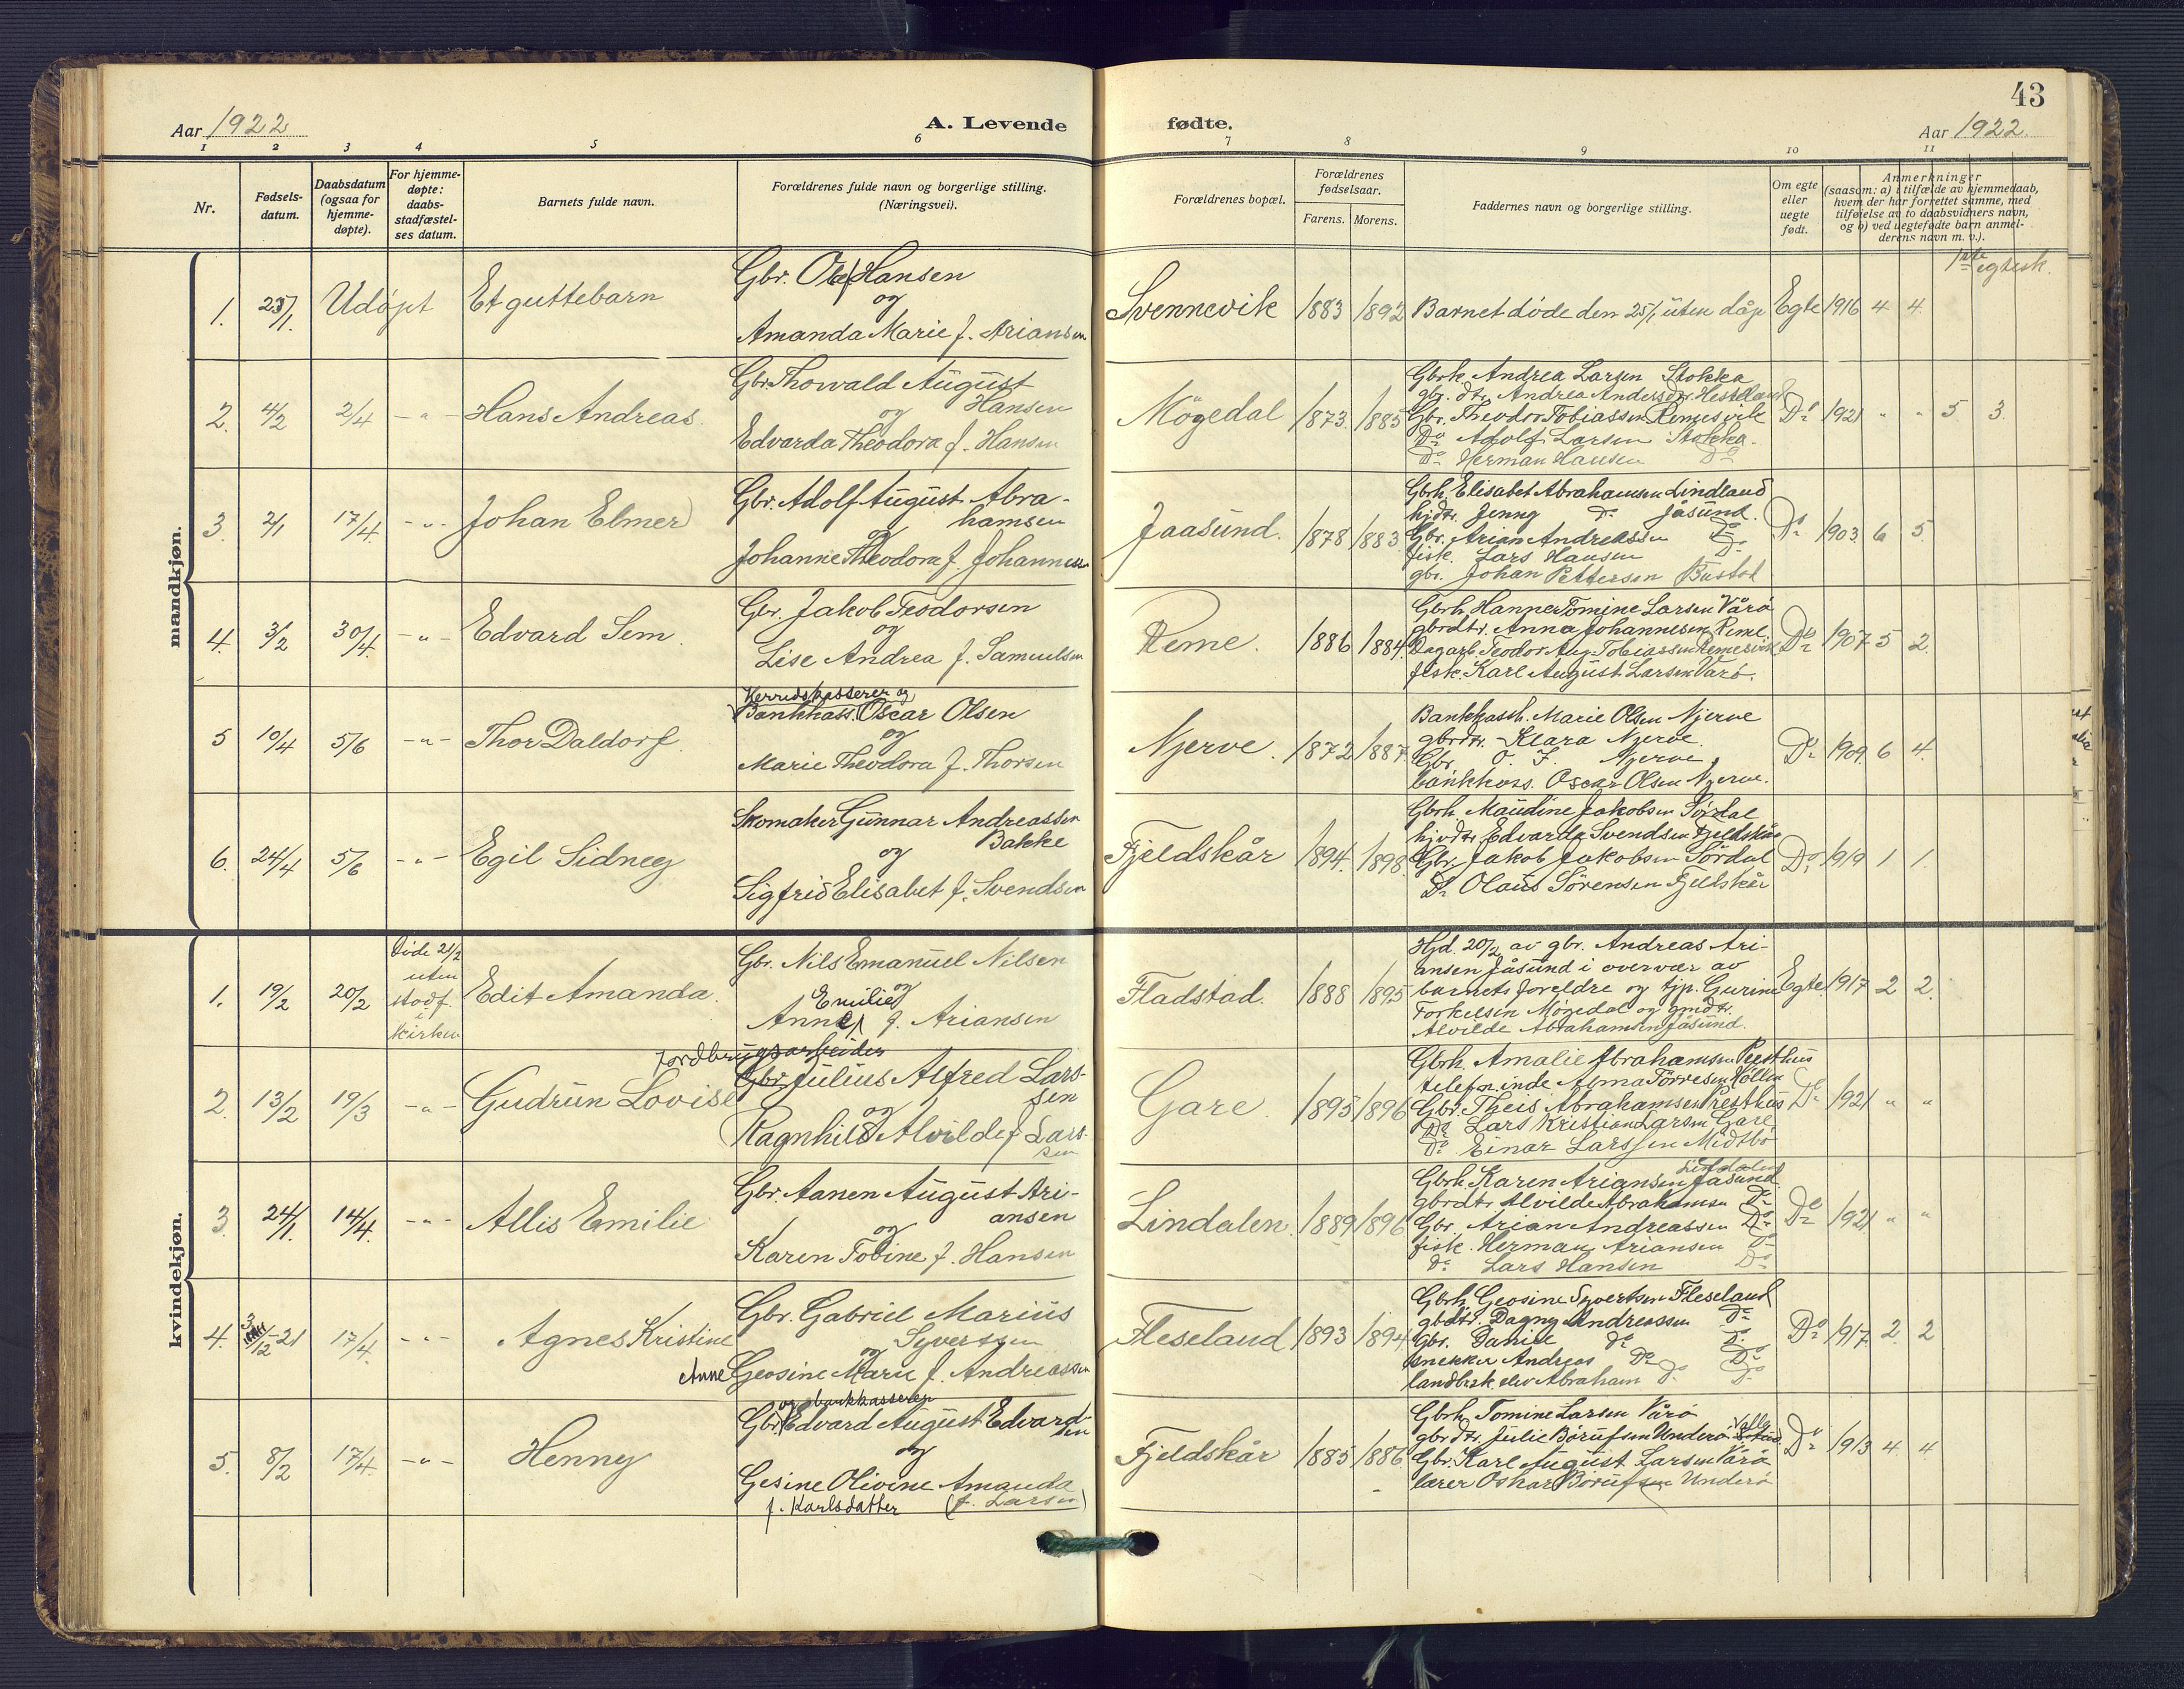 43
Aar 1922
A. Levende
fødte.
Aar 1922.
1 2 3 4 5 6 7 8 9 10 11
Nr.
Fødsels-
datum.
Daabsdatum
(ogsaa for
hjemme-
døpte).
For hjemme-
døpte:
daabs-
stadfæstel-
ses datum.
Barnets fulde navn.
Forældrenes fulde navn og borgerlige stilling.
(Næringsvei).
Forældrenes bopæl.
Forældrenes
fødselsaar.
Farens. Morens.
Faddernes navn og borgerlige stilling.
Om egte
eller
uegte
født.
Anmerkninger
(saasom: a) i tilfælde av hjemmedaab,
hvem der har forrettet samme, med
tilføielse av to daabsvidners navn,
og b) ved uegtefødte barn anmel-
derens navn m. v.).
1ste egtesk.
mandkjøn.
1. 25/1. Udøpt Et guttebarn
Gbr. Ole Hansen
og
Amanda Marie f. Ariansen
Svennevik 1883 1892 Barnet døde den 25/1 uten dåp Egte 1916 4 4.
2. 4/2 2/4 - " - Hans Andreas.
Gbr. Thorvald August
Hansen
og
Edvarda Theodora f. Hansen
Møgedal 1873. 1885
Gbrk. Andrea Larsen Stokka
gbr. dtr. Andrea Andersdtr. Hesteland
Gbr. Theodor Tobiassen Remesvik
Do Adolf Larsen Stokka.
Do Herman Hansen Do
Do 1921 " " 5 3.
3. 2/1 17/4. - " - Johan Elmer
Gbr. Adolf August Abra-
hamsen
og
Johanne Theodora f. Johannessen
Jaasund. 1878 1883
Gbrk. Elisabet Abrahamsen Lindland
hjdtr. Jenny Do Jåsund.
Gbr. Arian Andreassen Do
fisk. Lars Hansen Do
gbr. Johan Pettersen Bustad
Do 1903. 6 5.
4. 3/2 30/4. - " - Edvard Sem.
Gbr. Jakob Teodorsen
og
Lise Andrea f. Samuelsen
Reme. 1886 1884.
Gbrk. Hanne Tomine Larsen Vårø
gbrdtr. Anna Johannesen Reme
Dagarb. Teodor Aug. Tobiassen Remesvik
fisk. Karl August Larsen Varø.
Do 1907 5 2.
5 10/4 5/6 - " - Thor Daldorf.
Herredskasserer og
Bankkass. Oscar Olsen
og
Marie Theodora f. Thorsen
Njerve. 1872 1887.
Bankkassk. Marie Olsen Njerve
gbrdtr. Klara Njerve.
Gbr. O. T. Njerve,
bankkass. Oscar Olsen Njerve.
Do 1909. 6 4.
6. 24/4 5/6 - " - Egil Sidney
Skomaker Gunnar Andreassen
Bakke
og
Sigfrid Elisabet f. Svendsen
Fjeldskår 1894. 1898.
Gbrk. Maudine Jakobsen Sørdal
hjvdtr. Edvarda Svendsen Fjeldskår
Gbr. Jakob Jakobsen Sørdal
Do Olaus Sørensen Fjeldskår
Do 1919 1 1.
kvindekjøn.
1. 19/2 20/2
Døde 21/2
uten
stadf.
i
kirken
Edit Amanda.
Gbr. Nils Emanuel Nilsen
og
Emilie
Anne f. Ariansen
Fladstad. 1888 1895
Hjd. 20/2 av gbr. Andreas Ari-
ansen Jåsund i overvær av
barnets foreldre og tjp. Gurine
Torkelsen Møgedal og gmdtr.
Alvilde Abrahamsen Jåsund.
Egte. 1917 2 2.
2. 13/2 19/3 - " - Gudrun Lovise
Jordbrugsarbeider
Gbr. Julius Alfred Lars-
sen
og
Ragnhild Alvilde f. Lars-
sen
Gare. 1895 1896
Gbrk. Amalie Abrahamsen Presthus
telef.inde Alma Tørresen Høllen
Gbr. Theis Abrahamsen Presthus
Do Lars Kristian Larsen Gare
Do Einar Larssen Midtbø
Do 1921 " "
3. 24/1. 14/4. - " - Allis Emilie
Gbr. Aanen August Ari-
ansen
og
Karen Tobine f. Hansen
Lindalen. 1889 1896
Lindalen
Gbrk. Karen Ariansen Jåsund
gbrdtr. Alvilde Abrahamsen Do
Gbr. Arian Andreassen Do
fisk. Herman Ariansen Do
Do Lars Hansen Do
Do 1921 " "
4. 3/12-21 17/4. - " - Agnes Kristine
Gbr. Gabriel Marius
Syvertsen
og
Anne Geosine Marie f. Andreassen
Fleseland 1893 1894
Gbrk. Geosine Syvertsen Fleseland
gbdtr. Dagny Andreassen Do
Gbr. Daniel do Do
snekker Andreas Do Do
landbrsk. elev Abraham Do Do
Do 1917. 2. 2
5. 8/2 17/4. - " - Henny
og bankkasserer
Gbr. Edvard August Edvard-
sen
og
Gesine Olivine Amanda
f. Karlsdatter (f. Larsen)
Fjeldskår 1885 1886
Gbrk. Tomine Larsen Vårø
gbrdtr. Julie Børufsen Underø Valle
Gbr. Karl August Larsen Vårø
lærer Oskar Børufsen Underø
Do 1913 4 4